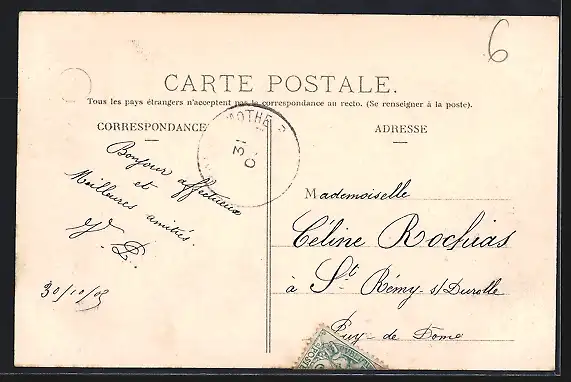 6
CARTE POSTALE.
Tous les pays étrangers n'acceptent pas la correspondance au recto. (Se renseigner à la poste).
CORRESPONDANCE
ADRESSE
MOTHE
31
Bonjour affectueux
et
Meilleures amitiés
30/10/05
Mademoiselle
Celine Rochias
à St Rémy s/Durolle
Puy-de Dome